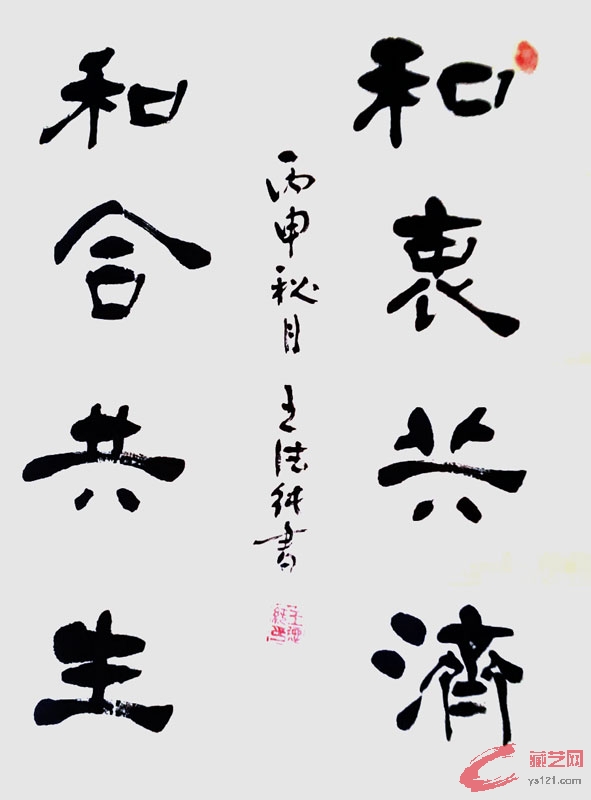 和衷共济
丙申秋月 王法纯書
和合共生
藏艺网
ys121.com